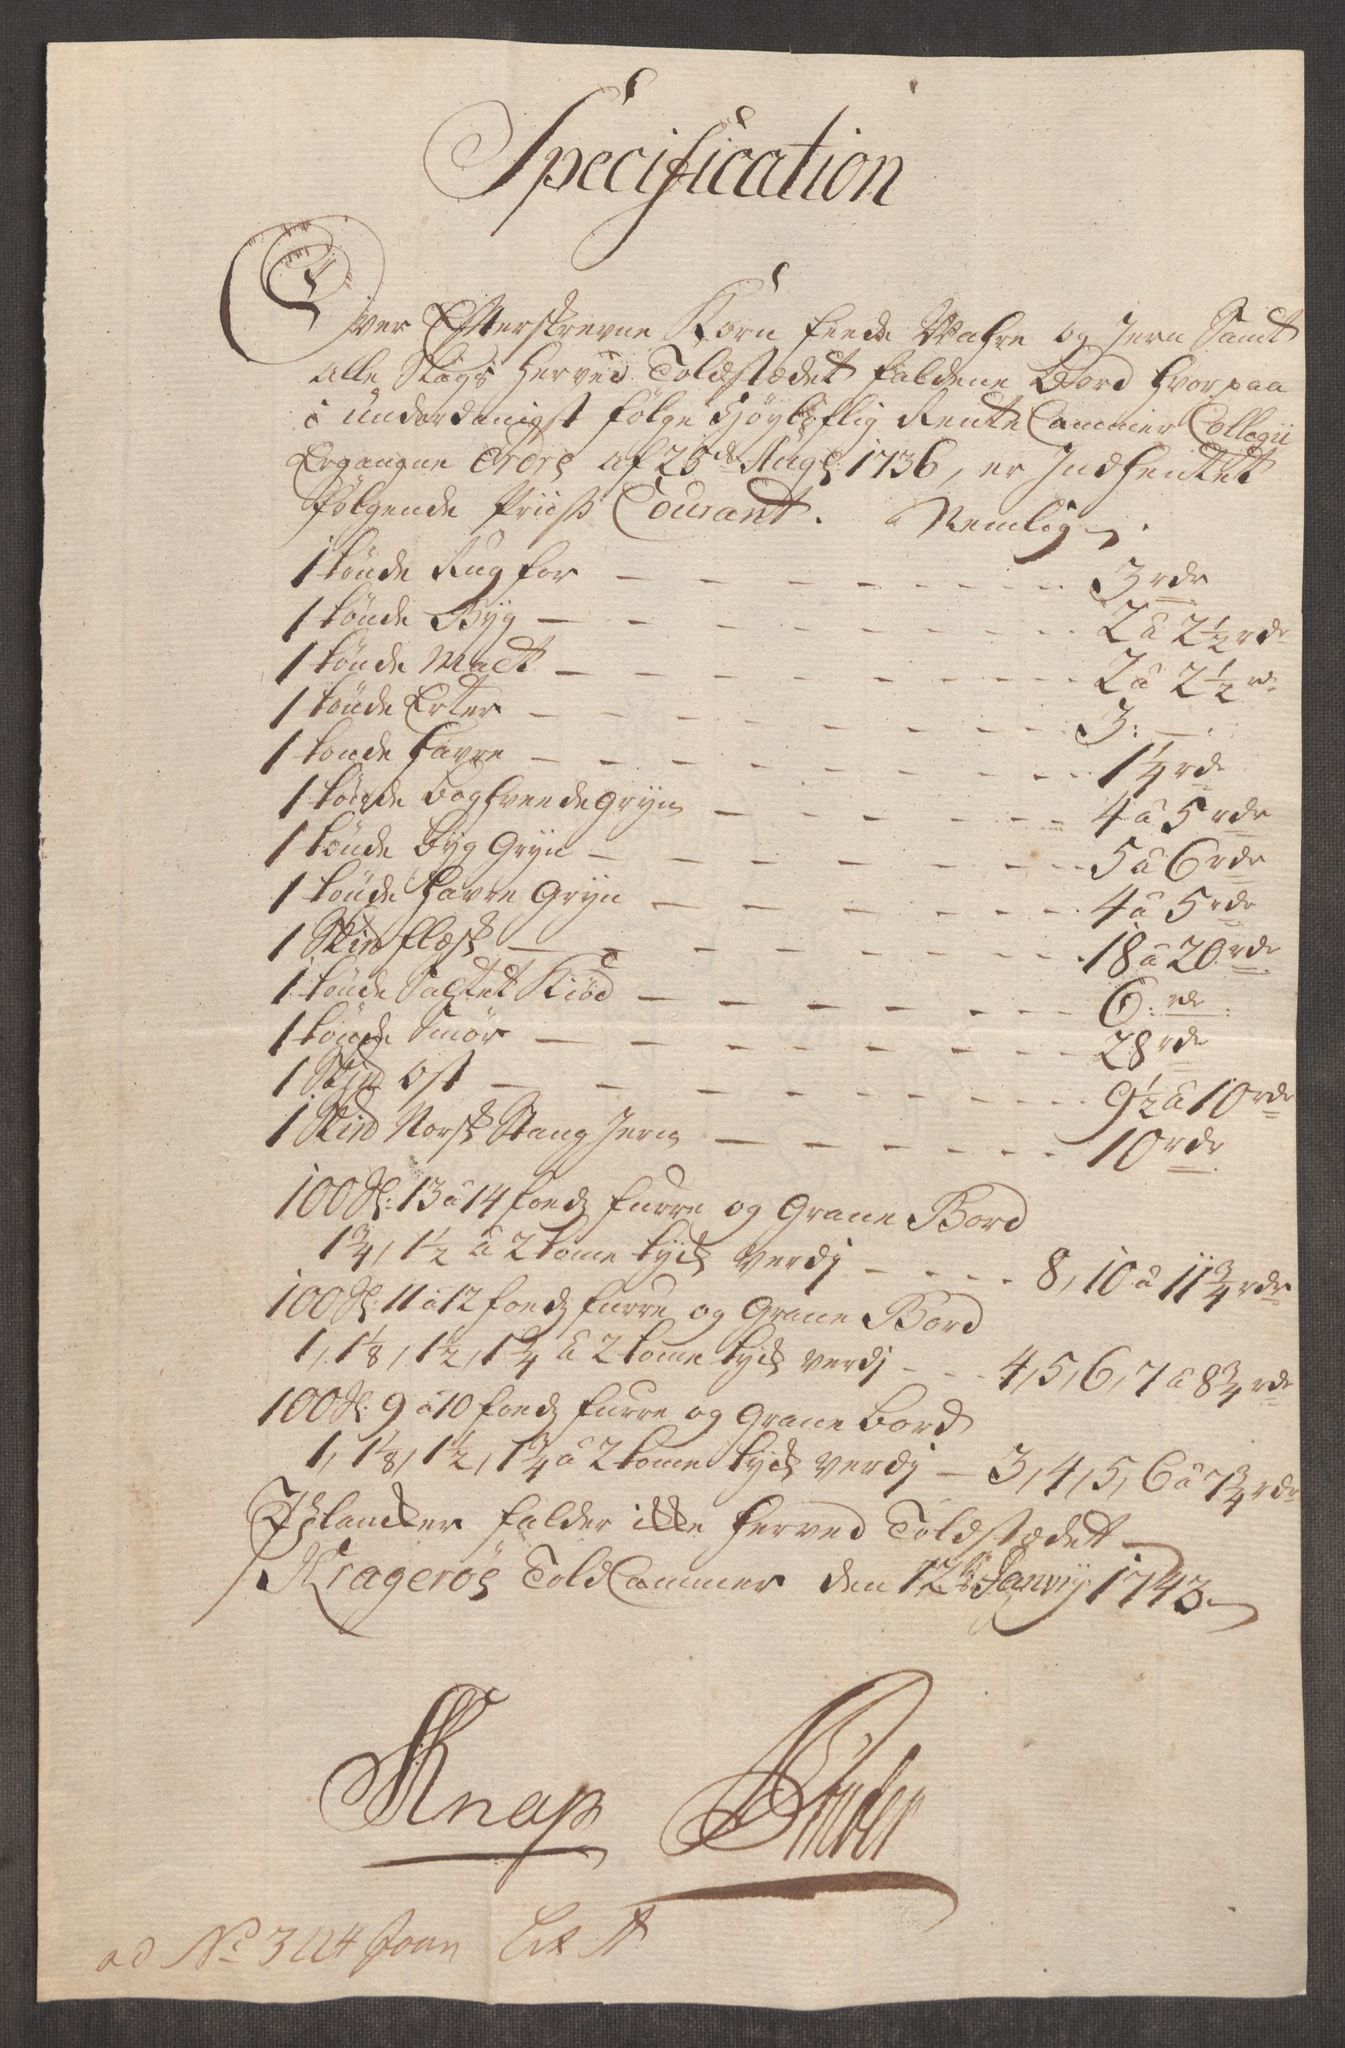 Specification
Over Efterskrevne Korn feede Wahre og Jern Samt
alle Slags herved Toldstædet faldene Bord hvorpaa
i underdanigst følge Høyløflig Rente Cammer Collegii
Ergangne Ordre af 25de Aug: 1736, er Indhentet
følgende Priiss Courant. Nemlig
1 tönde Rug for — 3 rdr
1 tönde Byg — 2 â 2 1/2 rdr
1 tönde Malt — 2 â 2 1/2 rdr
1 tönde Erter — 3:—
1 tonde Havre — 1 1/4 rdr
1 tönde boghveede Gryn — 4 â 5 rdr
1 tönde byg Gryn — 5 â 6 rdr
1 tönde Havre Gryn — 4 â 5 rdr
1 Sk℔ flæsk — 18 â 20 rdr
1 tönde Saltet Kiöd — 6: rdr
1 tönde Smör — 28 rdr
1 Sk℔ Ost — 9 1/2 â 10 rdr
1 Sk℔ Norsk Stang Jern — 10 rdr
100 st: 13 â 14 foeds furre og Grane Bord
1 3/4, 1 1/2 â 2 tome tyck verdj — 8, 10 â 11 3/4 rdr
100 st: 11 â 12 foeds furre og Grane Bord
1, 1 1/8, 1 1/2, 1 3/4 â 2 tome tyck verdj — 4, 5, 6, 7 â 8 3/4 rdr
100 st: 9 â 10 foeds furre og Grane bord
1, 1 1/8, 1 1/2, 1 3/4 â 2 tome tyck verdj — 3, 4, 5, 6 â 7 3/4 rdr
falder ikke herved Toldstædet
Kragerøe Told Cammer den 12te Janrij 1743
Knap
ad No 3114